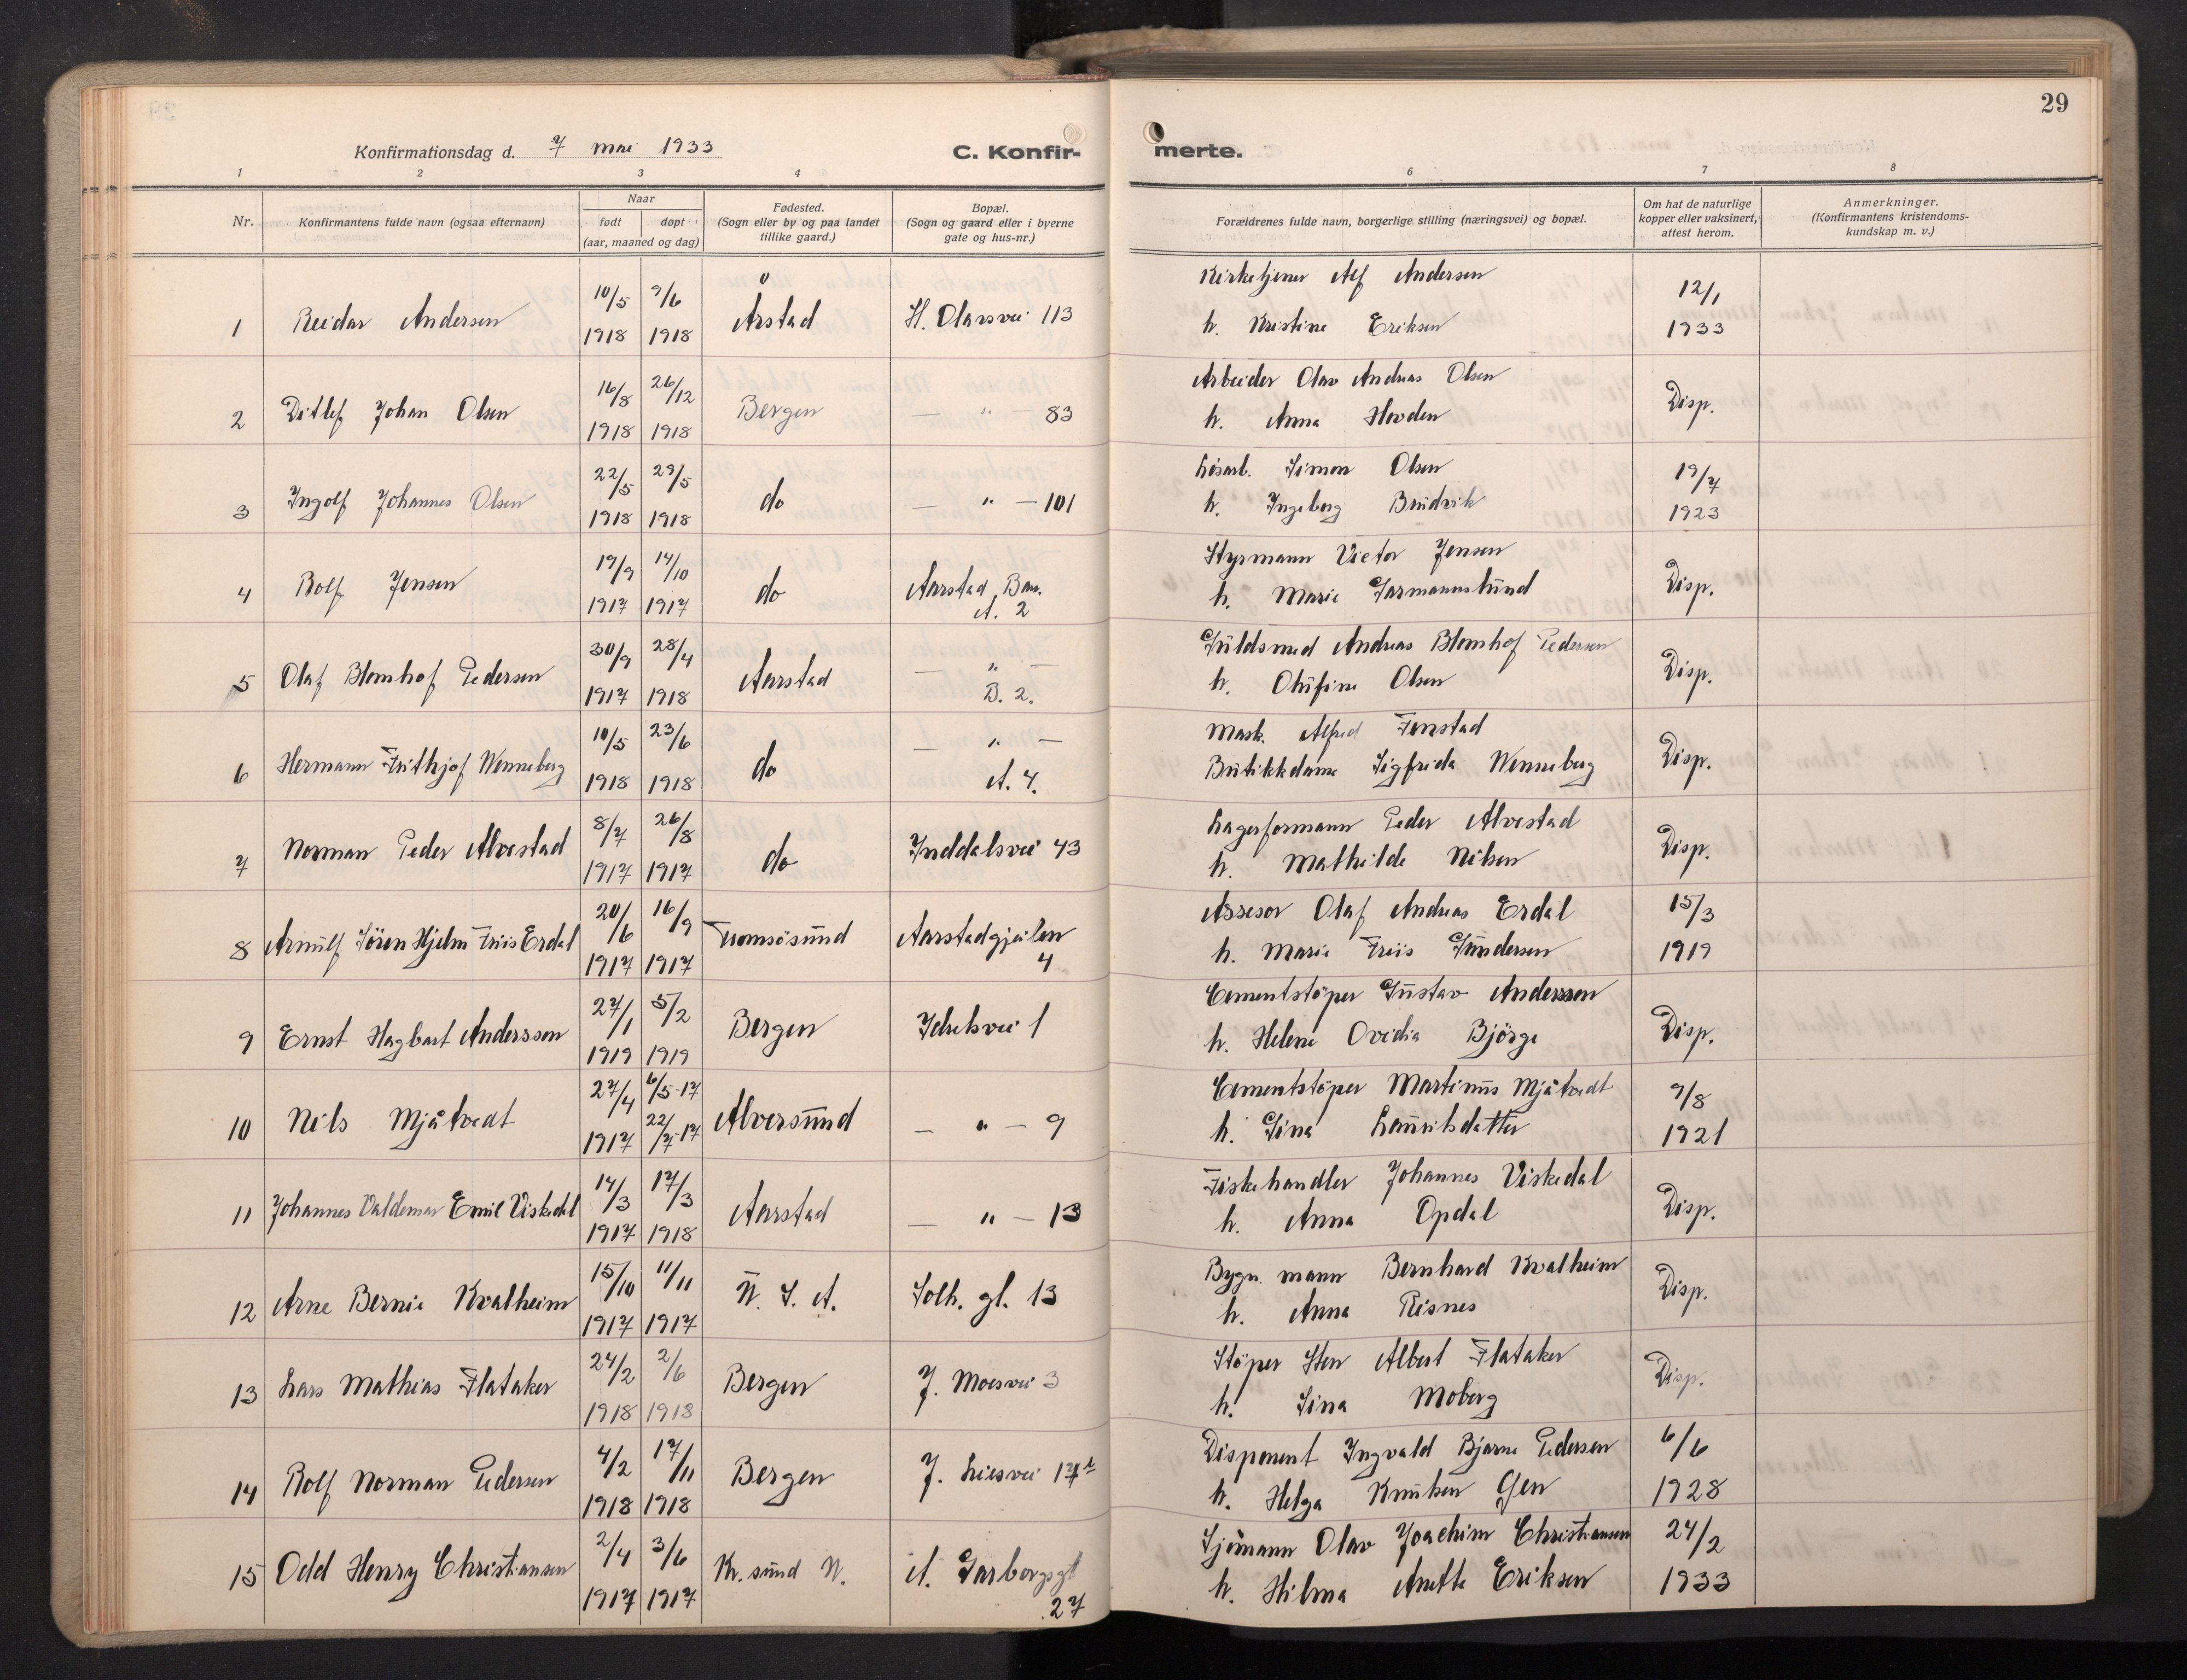 29
Konfirmationsdag d. 7 mai 1933
C. Konfir-
merte.
1 2 3 4 6 7 8
Nr.
Konfirmantens fulde navn (ogsaa efternavn)
Naar
født døpt
(aar, maaned og dag)
Fødested.
(Sogn eller by og paa landet
tillike gaard.)
Bopæl.
(Sogn og gaard eller i byerne
gate og hus-nr.)
Forældrenes fulde navn, borgerlige stilling (næringsvei) og bopæl.
Om hat de naturlige
kopper eller vaksinert,
attest herom.
Anmerkninger.
(Konfirmantens kristendoms-
kundskap m. v.)
10/5 9/6 Kirketjener Alf Andersen 12/1
1 Reidar Andersen Årstad H. Olavsvei 113
1918 1918 h. Kristine Eriksen 1933
16/8 26/12 Arbeider Olav Andreas Olsen
2 Ditlef Johan Olsen Bergen — " 83 Disp.
1918 1918 h. Anna Hovden
22/5 29/5 Løsarb. Simon Olsen 19/7
3 Ingolf Johannes Olsen do — " — 101
1918 1918 h. Ingeborg Brudvik 1923
19/9 14/10 Styrmann Victor Jensen
4 Rolf Jensen do Aarstad Bar. Disp.
1917 1917 A. 2 h. Marie Garmannslund
30/9 28/4 Guldsmed Andreas Blomhof Pedersen
5 Olaf Blomhof Pedersen Aarstad — " — Disp.
1917 1918 B. 2. h. Olufine Olsen
10/5 23/6 Mask. Alfred Fonstad
6 Hermann Frithjof Wenneberg do — " — Disp.
1918 1918 A. 4. Butikkdame Sigfrida Wenneberg
8/7 26/8 Lagerformann Peder Alvestad
7 Norman Peder Alvestad do Inddalsvei 43 Disp.
1917 1917 h. Mathilde Nilsen
20/6 16/9 Assesor Olaf Andreas Erdal 15/3
8 Arnulf Sören Hjelm Friis Erdal Tromsösund Aarstadgjeilen
1917 1917 4 h. Marie Friis Gundersen 1919
27/1 5/2 Cementstöper Gustav Anderssen
9 Ernst Hagbart Anderssen Bergen Ibsensvei 1 Disp.
1919 1919 h. Helene Ovidia Björge
27/4 6/5-17 Cementstöper Martinus Mjåtvedt 9/8
10 Nils Mjåtvedt Alversund — " — 9
1917 22/7-17 h. Gina Lauritsdatter 1921
14/3 17/3 Fiskehandler Johannes Viskedal
11 Johannes Valdemar Emil Viskedal Aarstad — " — 13 Disp.
1917 1918 h. Anna Opdal
15/10 11/11 Bygn. mann Bernhard Kvalheim
12 Arne Bernie Kvalheim U. S. A. Solh. gt. 13 Disp.
1917 1917 h. Anna Risnes
24/2 2/6 Stöper Sten Albert Flataker
13 Lars Mathias Flataker Bergen J. Moesvei 3 Disp.
1918 1918 h. Sina Moberg
4/2 17/11 Disponent Ingvald Bjarne Pedersen 6/6
14 Rolf Norman Pedersen Bergen J. Liesvei 17
1918 1918 h. Helga Knutsen Gjen 1928
2/4 3/6 Sjömann Olav Joachim Christiansen 24/2
15 Odd Henry Christiansen Kr. sund N. A. Garborgsgt
1917 1917 27 h. Hilma Anette Eriksen 1933